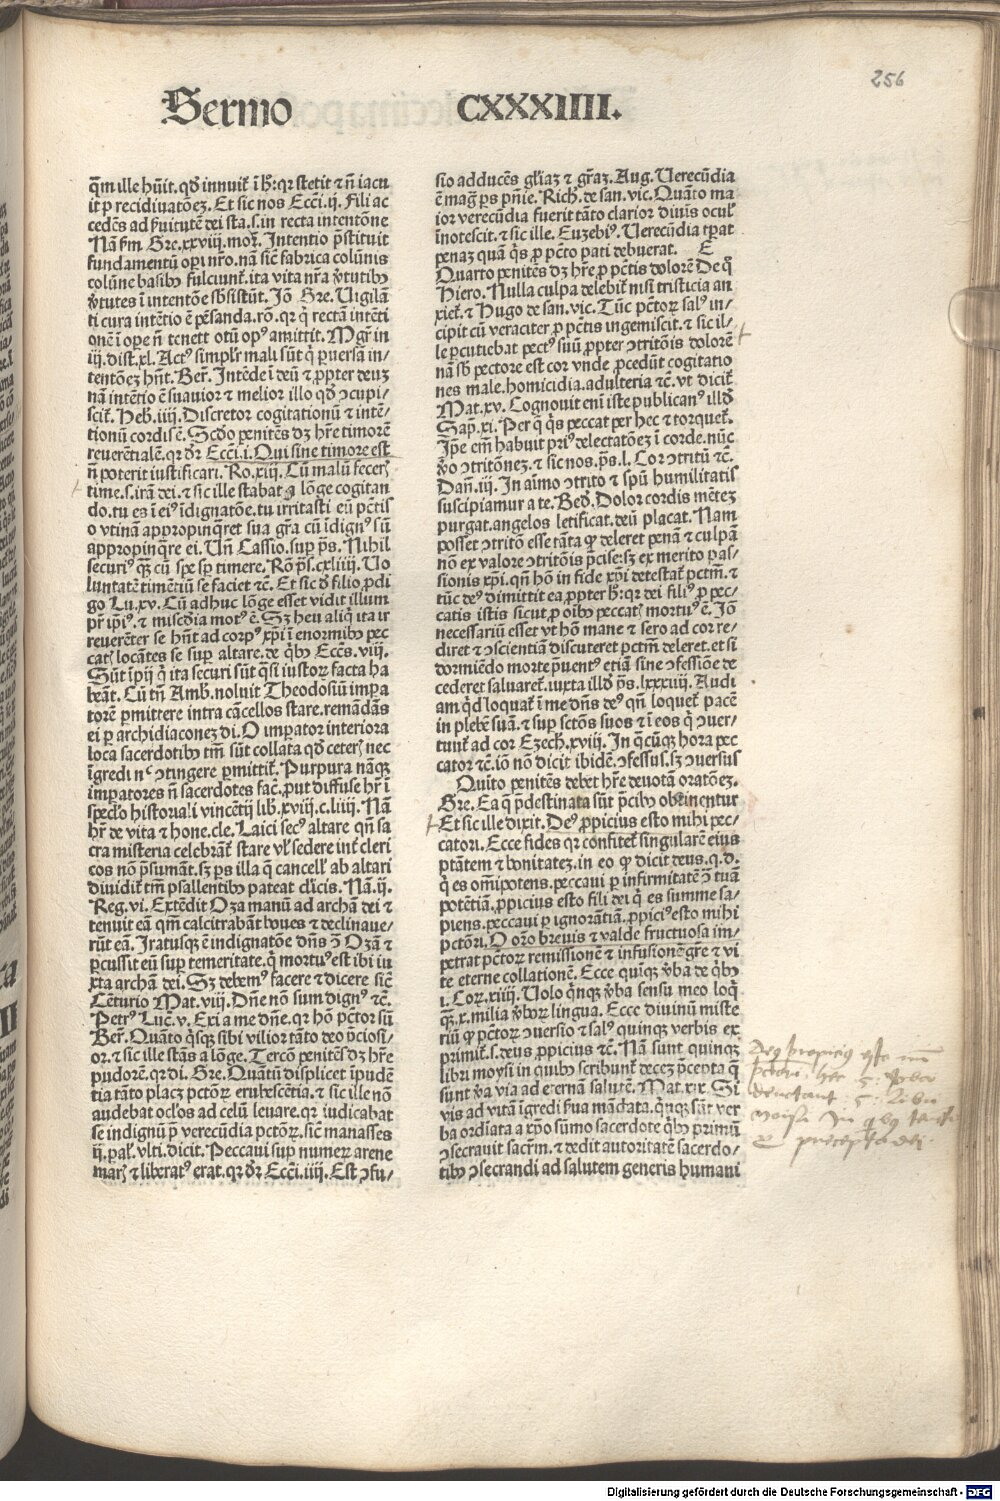 256
Sermo CXXXIIII.
q̄m ille hūit. qđ innuit̄ i h̄: qꝛ stetit ⁊ n̄ iacu
it p recidiuatōeꝫ. Et sic nos Ecci̅. ij. Fili ac
cedēs ad ẜuitutē dei sta. s. in recta intentōne
Nā ẜm Gre. xxviii. moꝝ. Intentio p̄stituit
fundamentū oꝑi nr̄o. nā sic̄ fabrica colūnis
colūne basibꝰ fulciunt̄. ita vita nr̄a v̄tutibꝰ
v̄tutes i intentōe sb̄sistūt. Jō Gre. Uigilā
ti cura intētio ē pēsanda. rō. qꝛ q̄ rectā intēti
onē i oꝑe n̄ tenett otū opꝰ amittit. Mgr̄ in
iij. dist. xl. Actꝰ simplꝛ mali sūt q̄ ꝑuersa in⸗
tentōeꝫ hn̄t. Ber̄. Intēde i deū ⁊ ꝓpter deuꝫ
nā intētio ē suauior ⁊ melior illo qđ ↄcupi⸗
scit̄. Heb̄. iiij. Discretor cogitationū ⁊ intē⸗
tionū cordis ē. Scđo penitēs dꝫ hr̄e timorē
reuerētialē. qꝛ dꝛ Ecci̅. i. Qui sine timore est
n̄ poterit iustificari. Ro. xiij. Cū malū feceꝝ
time. s. irā dei. ⁊ sic ille stabat a lōge cogitan
do. tu es i eiꝰ idignatōe. tu irritasti eū pctīs
o vtinā appropinq̄ret sua gr̄a cū idignꝰ sū
appropinq̄re ei. Un̄ Cassio. suꝑ p̄s. Nihil
securiꝰ qꝫ cū spe sꝑ timere. Rō p̄s. cxliiij. Uo
luntatē timētiū se faciet ⁊c̄. Et sic đ filio ꝓdi
go Lu. xv. Cū adhuc lōge esset vidit illum
pr̄ ipiꝰ. ⁊ misc̄dia motꝰ ē. Sꝫ heu aliq̄ ita ir
reuerēter se hn̄t ad corpꝰ xp̄i i enormibꝰ pec
catꝭ locātes se suꝑ altare. de q̄bꝰ Eccs̄. viij.
Sūt ipij q̄ ita securi sūt q̄si iustoꝝ facta ha
beāt. Cū tn̄ Amb̄. noluit Theodosiū impa
torē ꝑmittere intra cācellos stare. remādās
ei ꝑ archidiaconeꝫ di. O imꝑator interiora
loca sacerdotibꝰ tm̄ sūt collata qđ ceteꝝ nec
igredi nc̄ ↄtingere ꝑmittit̄. Purpura nāqꝫ
imꝑatores n̄ sacerdotes fac̄. put diffuse hr̄ i
spec̄lo historiali vincētij lib̄. xviij. c. liiij. Nā
hr̄ de vita ⁊ hone. cle. Laici secꝰ altare qn̄ sa
cra misteria celebrāt̄ stare vl̄ sedere int̄ cleri
cos nō p̄sumāt. sꝫ ꝑs illa q̄ cancellꝭ ab altari
diuidit̄ tm̄ psallentibꝰ pateat cl̄icis. Nā. ij.
Reg. vi. Extēdit Oza manū ad archā dei ⁊
tenuit eā qm̄ calcitrabāt boues ⁊ declinaue⸗
rūt eā. Iratusqꝫ ē indignatōe dn̄s ↄ̄ Ozā ⁊
ꝑcussit eū suꝑ temeritate. q̄ mortuꝰ est ibi iu
xta archā dei. Sꝫ debemꝰ facere ⁊ dicere sic̄
Cēturio Mat. viij. Dn̄e nō sum dignꝰ ⁊c̄.
Petrꝰ Luc̄. v. Exi a me dn̄e. qꝛ hō pctōr sū
Ber̄. Quāto q̄sqꝫ sibi vilior tāto deo p̄ciosi⸗
or. ⁊ sic ille stās a lōge. Tercō penitēs dꝫ hr̄e
pudorē. qꝛ di. Gre. Quātū displicet ipudē
tia tāto placꝫ pctōꝝ erubescētia. ⁊ sic ille nō
audebat ocl̄os ad celū leuare. qꝛ iudicabat
se indignū p̄ verecūdia pctōꝝ. sic̄ manasses
ij. pal̄. vlti. dicit. Peccaui suꝑ numeꝝ arene
marꝭ ⁊ liberatꝰ erat. qꝛ dꝛ Ecci̅. iiij. Est ↄfu⸗
sio adducēs gl̄iaꝫ ⁊ gr̄aꝫ. Aug. Uerecūdia
ē mag̅ ꝑs pn̄ie. Rich. de san. vic. Quāto ma
ior verecūdia fuerit tāto clarior diuis oculꝭ
inotescit. ⁊ sic ille. Euzebiꝰ. Uerecūdia tꝑat
penaꝫ quā q̄s ꝓ pctō pati debuerat. E
Quarto penitēs dꝫ hr̄e ꝓ pctīs dolorē De q̄
Hiero. Nulla culpa delebit̄ nisi tristicia an
xiet̄. ⁊ Hugo de san. vic. Tūc pctōꝝ salꝰ in⸗
cipit cū veraciter ꝓ pctīs ingemiscit. ⁊ sic il⸗
le ꝑcutiebat pectꝰ suū ꝓpter ↄtritōis dolorē
nā sb̄ pectore est cor vnde ꝓcedūt cogitatio
nes male. homicidia. adulteria ⁊c̄. vt dicit̄
Mat. xv. Cognouit eni iste publicanꝰ illđ
Sap̄. xi. Per q̄ q̄s peccat per hec ⁊ torquet̄.
Ip̄e em̄ habuit priꝰ delectatōeꝫ i corde. nūc
v̄o ↄtritōneꝫ. ⁊ sic nos. p̄s. l. Cor ↄtritū ⁊c̄.
Dan̄. iij. In aīmo ↄtrito ⁊ spū humilitatis
suscipiamur a te. Beđ. Dolor cordis mēteꝫ
purgat. angelos letificat. deū placat. Nam
posset ↄtritō esse tāta ꝙ deleret penā ⁊ culpā
nō ex valore ↄtritōis p̄cise. sꝫ ex merito pas⸗
sionis xp̄i. qn̄ hō in fide xp̄i detestat̄ pctm̄. ⁊
tūc deꝰ dimittit ea ꝓpter h̄: qꝛ dei filiꝰ ꝓ pec⸗
catis istis sicut ꝓ oībꝰ peccatꝭ mortuꝰ ē. Jō
necessariū esset vt hō mane ⁊ sero ad cor re⸗
diret ⁊ ↄscientiā discuteret pctm̄ deleret. et si
dormiēdo morte p̄uentꝰ etiā sine ↄfessiōe de
cederet saluaret̄. iuxta illđ p̄s. lxxxiiij. Audi
am qđ loquat̄ i me dn̄s deꝰ qn̄ loquet̄ pacē
in plebē suā. ⁊ suꝑ sctōs suos ⁊ i eos q̄ ↄuer⸗
tunt̄ ad cor Ezech̄. xviij. In q̄cūqꝫ hora pec
cator ⁊c̄. iō nō dicit ibidē ↄfessus. sꝫ ↄuersus
Quīto penitēs debet hr̄e deuotā oratōeꝫ.
Gre. Ea q̄ p̄destinata sūt p̄cibꝰ obtinentur
Et sic ille dixit. Deꝰ ꝓpicius esto mihi pec⸗
catori. Ecce fides qꝛ confitet̄ singularē eius
ptātem ⁊ bonitateꝫ. in eo ꝙ dicit deus. q. d.
q̄ es om̄ipotens. peccaui ꝑ infirmitatē ↄ̄ tuā
potētiā. ꝓpicius esto fili dei q̄ es summe sa⸗
piens. peccaui ꝑ ignorātiā. ꝓpiciꝰ esto mihi
pctōri. O or̄o breuis ⁊ valde fructuosa im⸗
petrat pctōꝝ remissionē ⁊ infusionē gr̄e ⁊ vi
te eterne collationē. Ecce quiqꝫ v̄ba de q̄bꝰ
i. Coꝝ. xiiij. Uolo q̄nqꝫ v̄ba sensu meo loq̄
qꝫ. x. milia v̄boꝝ lingua. Ecce diuinū miste
riū ꝙ pctōꝝ ↄuersio ⁊ salꝰ quinqꝫ verbis ex
primit̄. s. deus ꝓpicius ⁊c̄. Nā sunt quinqꝫ
libri moysi in quibꝰ scribunt̄ decēꝫ p̄cepta q̄
sunt v̄a via ad eternā salutē. Mat. xix. Si
vis ad vitā igredi ẜua mādata. q̄nqꝫ sūt ver
ba ordiata a xp̄o sūmo sacerdote q̄bꝰ primū
ↄsecrauit sacr̄m. ⁊ dedit autoritatē sacerdo⸗
tibꝰ ↄsecrandi ad salutem generis humani
Deꝰ propiciꝰ esto m̄
Digitalisierung gefördert durch die Deutsche Forschungsgemeinschaft - DFG